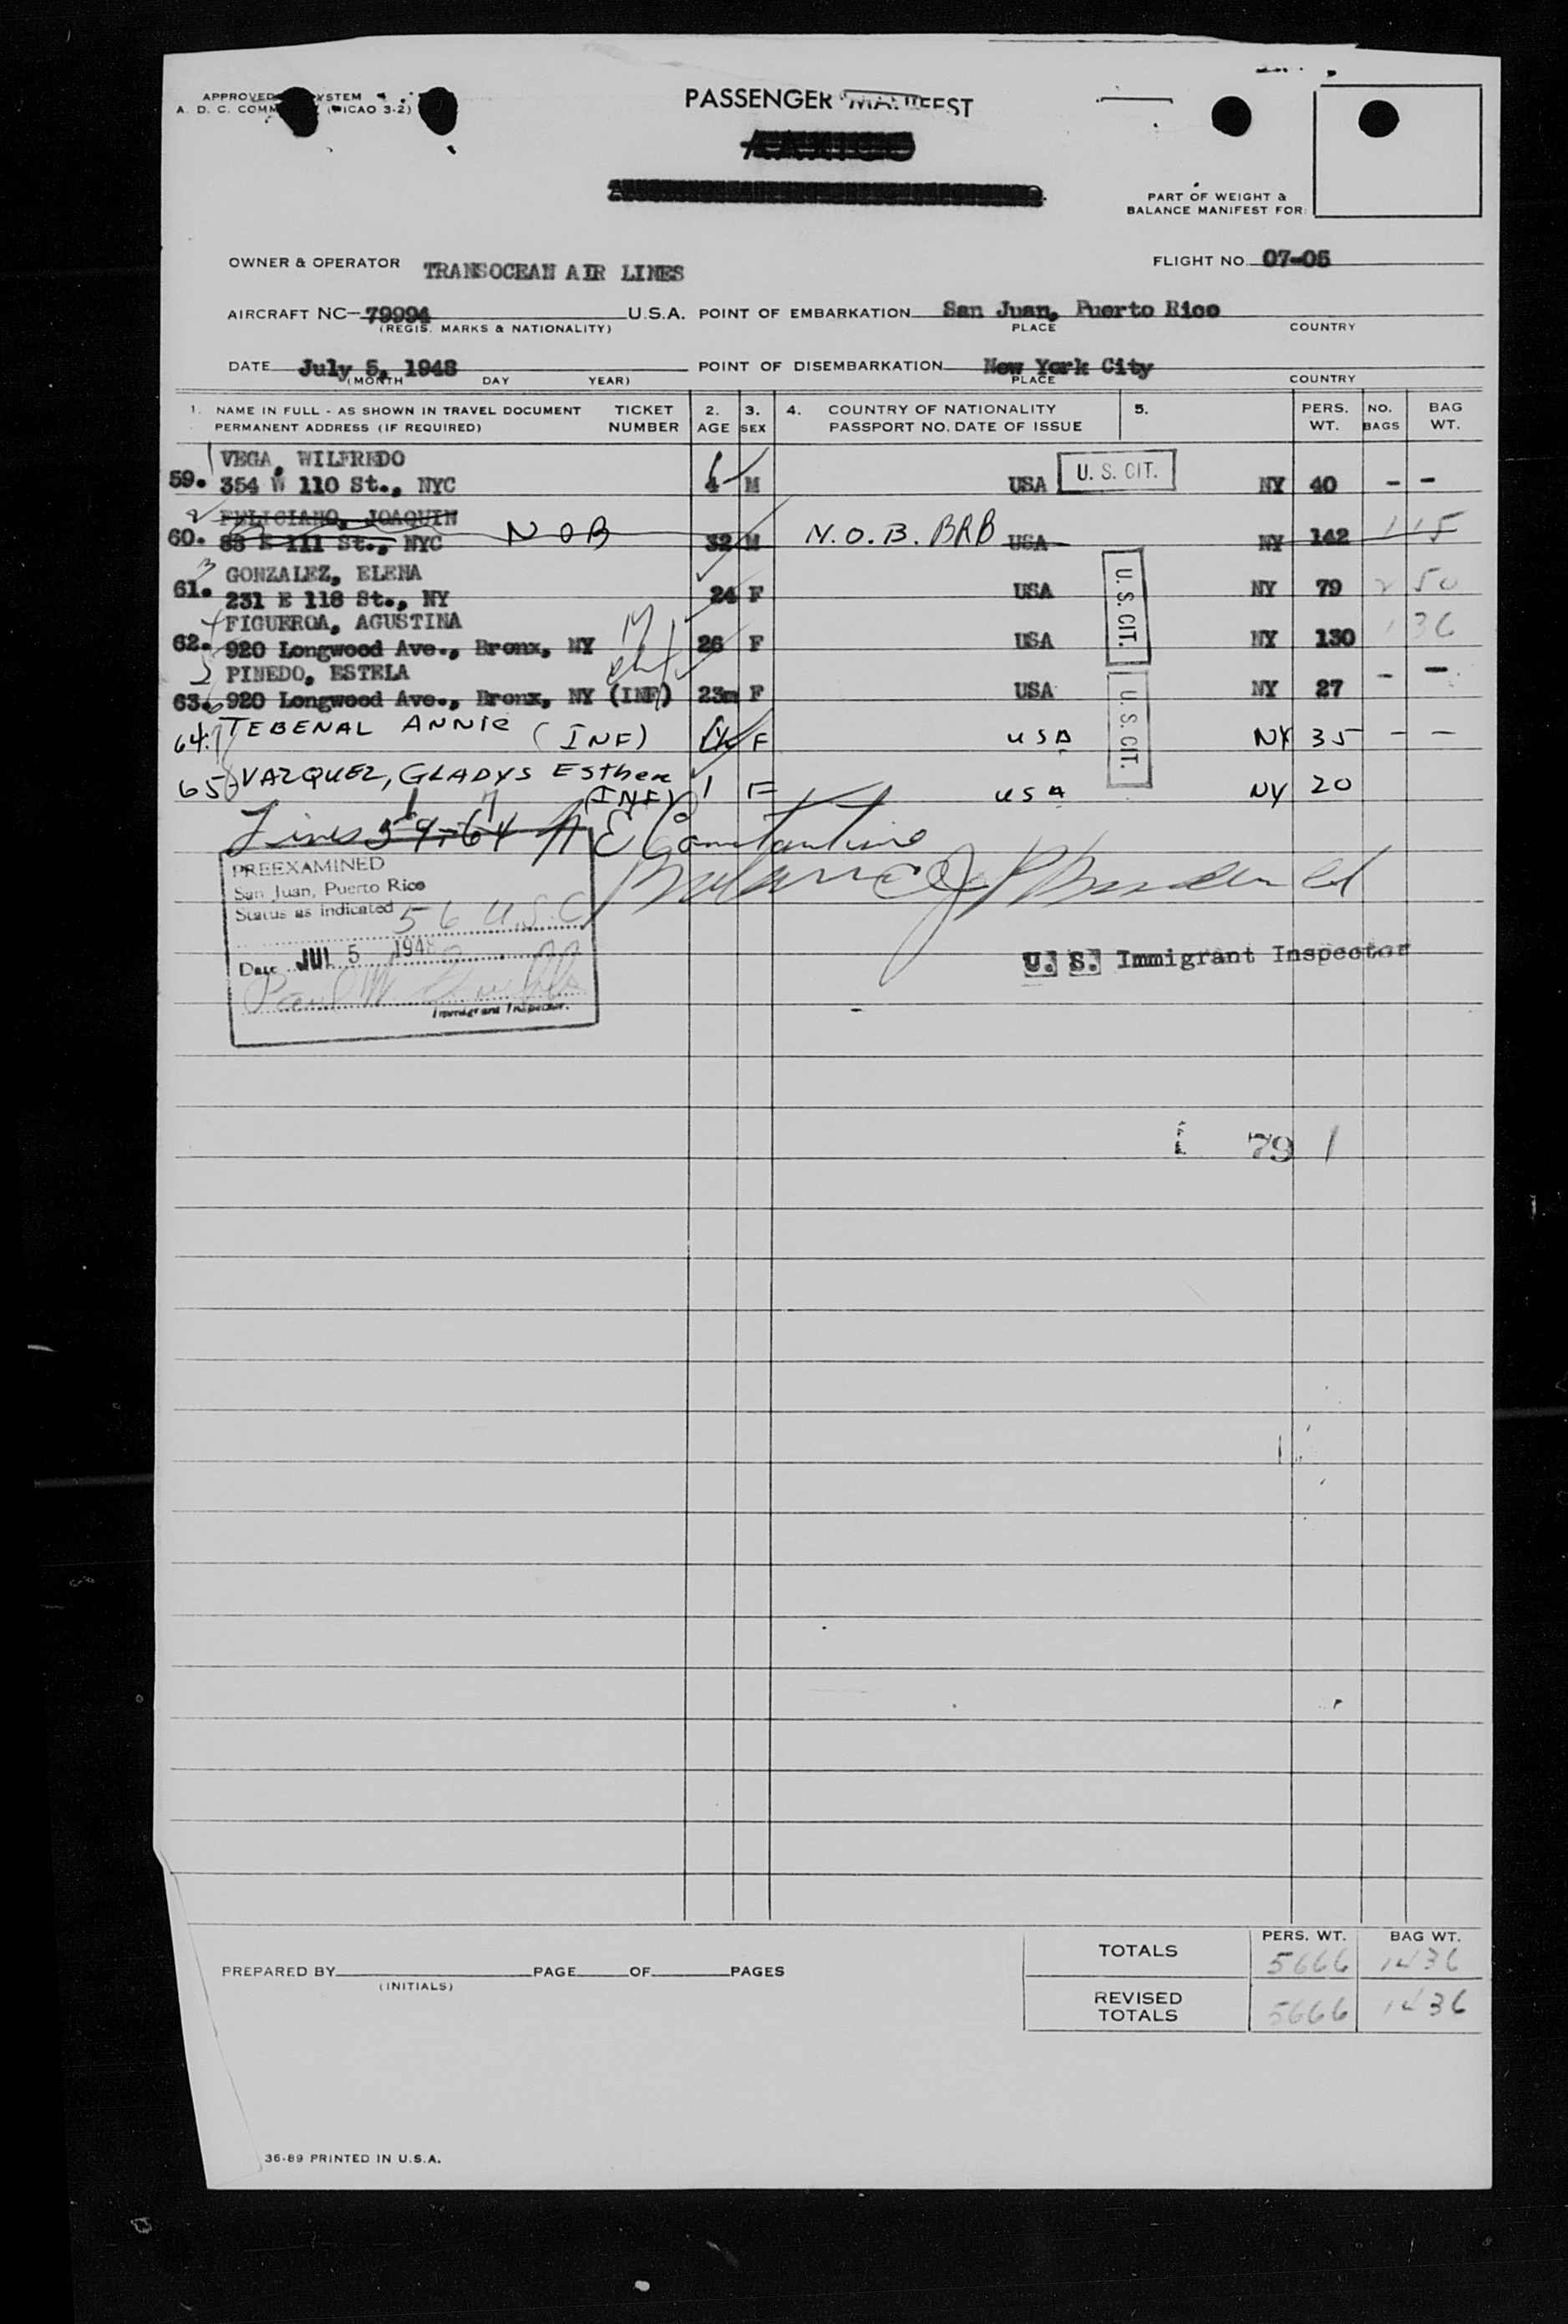 APPROVED SYSTEM
A. D. C. COMM (PICAO 3-2)
PASSENGER MANIFEST
PART OF WEIGHT &
BALANCE MANIFEST FOR:
OWNER & OPERATOR TRANSOCEAN AIR LINES
FLIGHT NO. 07-05
AIRCRAFT NC-79994 U.S.A. POINT OF EMBARKATION San Juan, Puerto Rico
(REGIS. MARKS & NATIONALITY) PLACE COUNTRY
DATE July 5, 1948 POINT OF DISEMBARKATION New York City
(MONTH DAY YEAR) PLACE COUNTRY
1. NAME IN FULL - AS SHOWN IN TRAVEL DOCUMENT TICKET 2. 3. 4. COUNTRY OF NATIONALITY 5. PERS. NO. BAG
PERMANENT ADDRESS (IF REQUIRED) NUMBER AGE SEX PASSPORT NO. DATE OF ISSUE WT. BAGS WT.
1 VEGA, WILFREDO
59. 354 W 110 St., NYC 4 M USA U. S. CIT. NY 40 - -
2 FELICIANO, JOAQUIN
60. 83 E 111 St., NYC NOB 32 M N.O.B. BRB USA NY 142 1 15
3 GONZALEZ, ELENA
61. 231 E 118 St., NY 24 F USA U. S. CIT. NY 79 2 50
4 FIGUEROA, AGUSTINA
62. 920 Longwood Ave., Bronx, NY 26 F USA NY 130 1 36
PINEDO, ESTELA
63. 920 Longwood Ave., Bronx, NY (INF) 23m F USA U. S. CIT. NY 27 - -
64. TEBENAL ANNIE (INF) F USA NY 35 - -
65 VAZQUEZ, GLADYS Esther
(INF) 1 F USA NY 20
Lines 59-64
PREEXAMINED
San Juan, Puerto Rico
Status as indicated 56 U.S.C
Date JUL 5 1948
Immigrant Inspector.
U. S. Immigrant Inspector
79 1
TOTALS PERS. WT. 5666 BAG WT. 1436
PREPARED BY PAGE OF PAGES
(INITIALS)
REVISED TOTALS 5666 1436
36-89 PRINTED IN U.S.A.